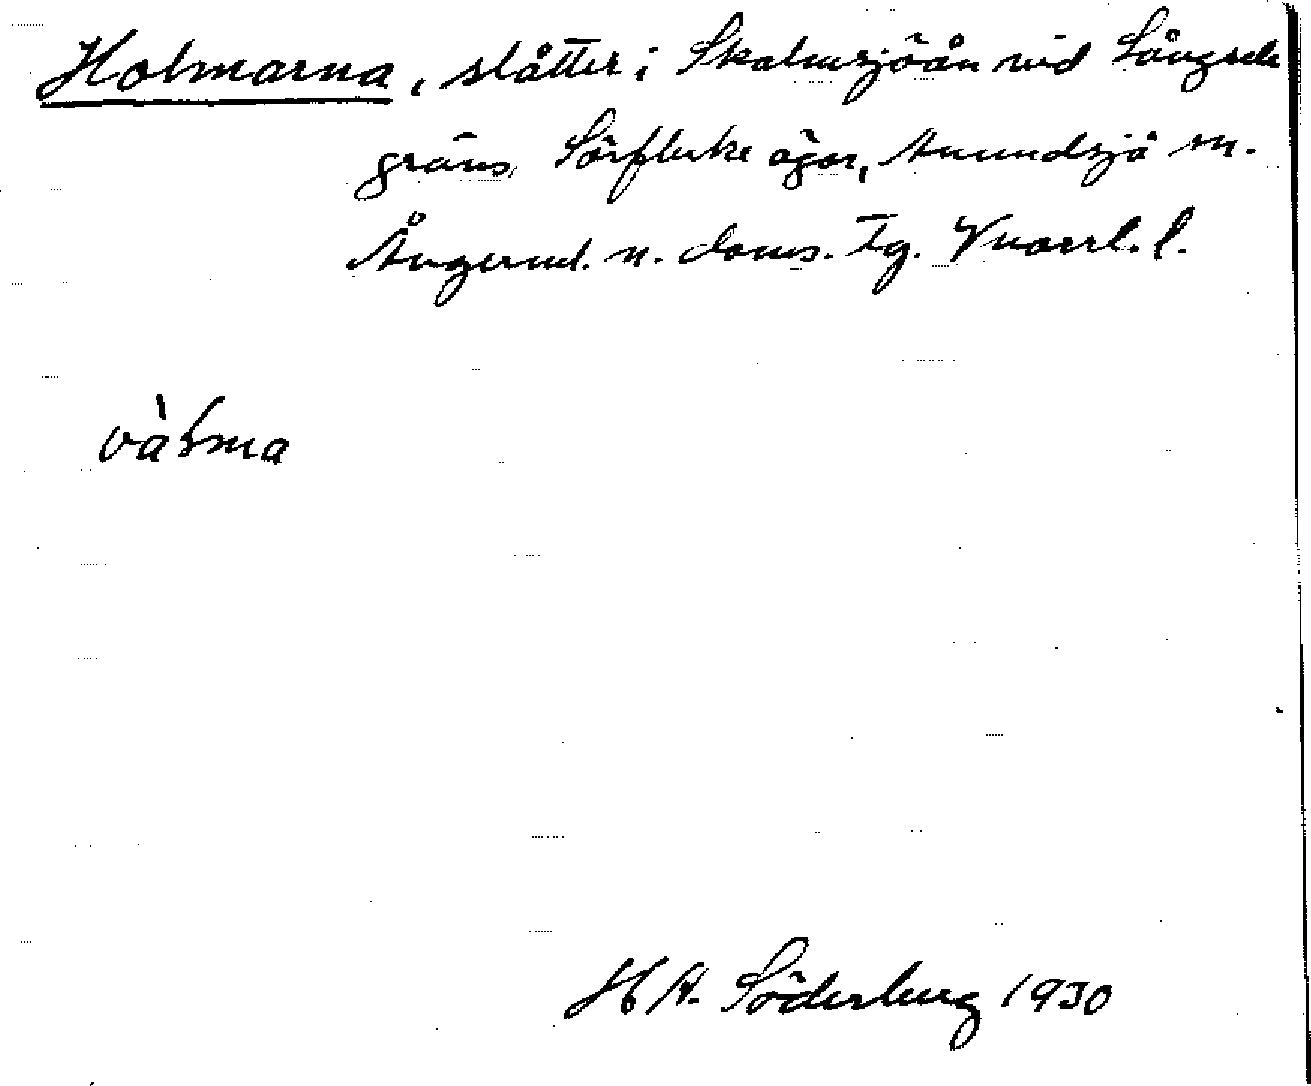 Holmarna, slåtter i Skalmsjöån vid Långsele
gräns, Sörflärke ägor, Anundsjö sn.
Ångerml. n. doms. tg. Vnorrl. l.
våɫma
H A. Söderberg 1930